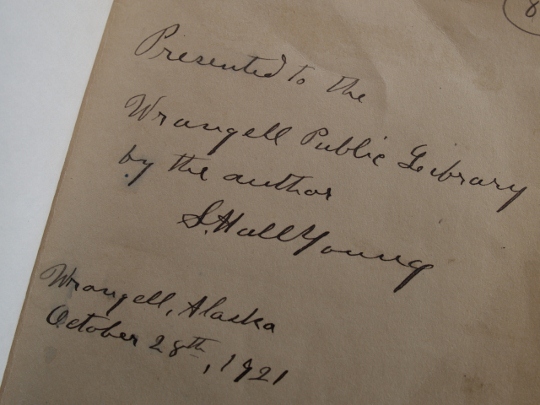 8
Presented to the
Wrangell Public Library
by the author
S. Hall Young
Wrangell, Alaska
October 28th, 1921